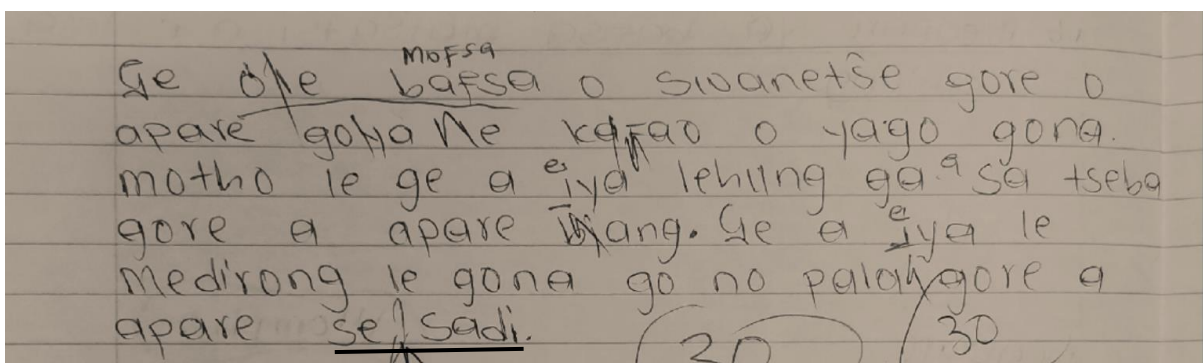 Ge o le mofsa o swanetše gore o
apare go ya ne ka fao o yago gona.
motho le ge a eya lehung ga a sa tseba
gore a apare mang. Ge a eya le
medirong le gona go no pala gore a
apare se sadi.
30 30